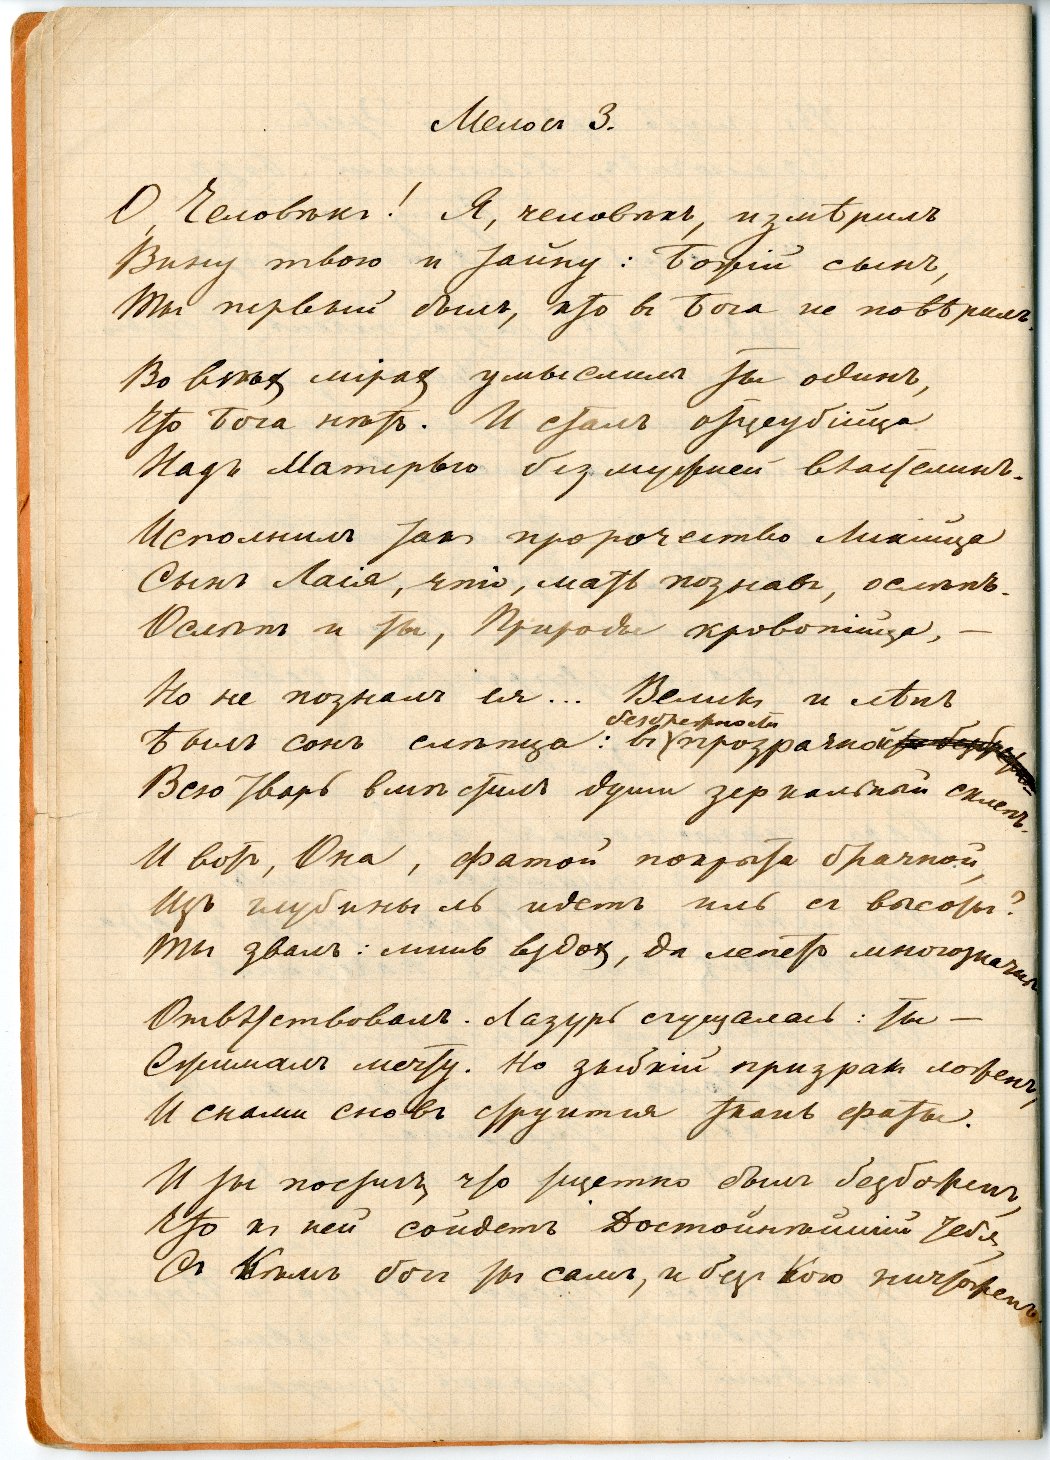 Мелосъ 3.
О, Человѣкъ! Я, человѣкъ, измѣрилъ
Вину твою и тайну: Божій сынъ,
Ты первый былъ, кто въ Бога не повѣрилъ.
Во всѣхъ мірахъ умыслилъ ты одинъ,
Что Бога нѣтъ. И сталъ отцеубійца
Надъ Матерью безмужней властелинъ.
Исполнилъ такъ пророчество Ликійца
Сынъ Лаія, что, мать познавъ, ослѣпъ.
Ослѣпъ и ты, Природы кровопійца, —
Но не позналъ ея... Великъ и лѣпъ
Былъ сонъ слѣпца: въ прозрачной
безбрежности
Всю тварь вмѣстилъ души зеркальный склепъ.
И вотъ, Она, фатой покрыта брачной,
Изъ глубины ль идетъ иль съ высоты?
Ты звалъ: лишь вздохъ, да лепетъ многозначный
Отвѣтствовалъ. Лазурь сгущалась: ты —
Сжималъ мечту. Но зыбкій призракъ ложенъ,
И скалы сновъ струится ткань фаты.
И ты постигъ, что тщетно былъ безбоженъ,
Что къ ней сойдетъ Достойнѣйшій тебя,
Съ Кѣмъ богъ ты самъ, и безъ Кого ничтоженъ.